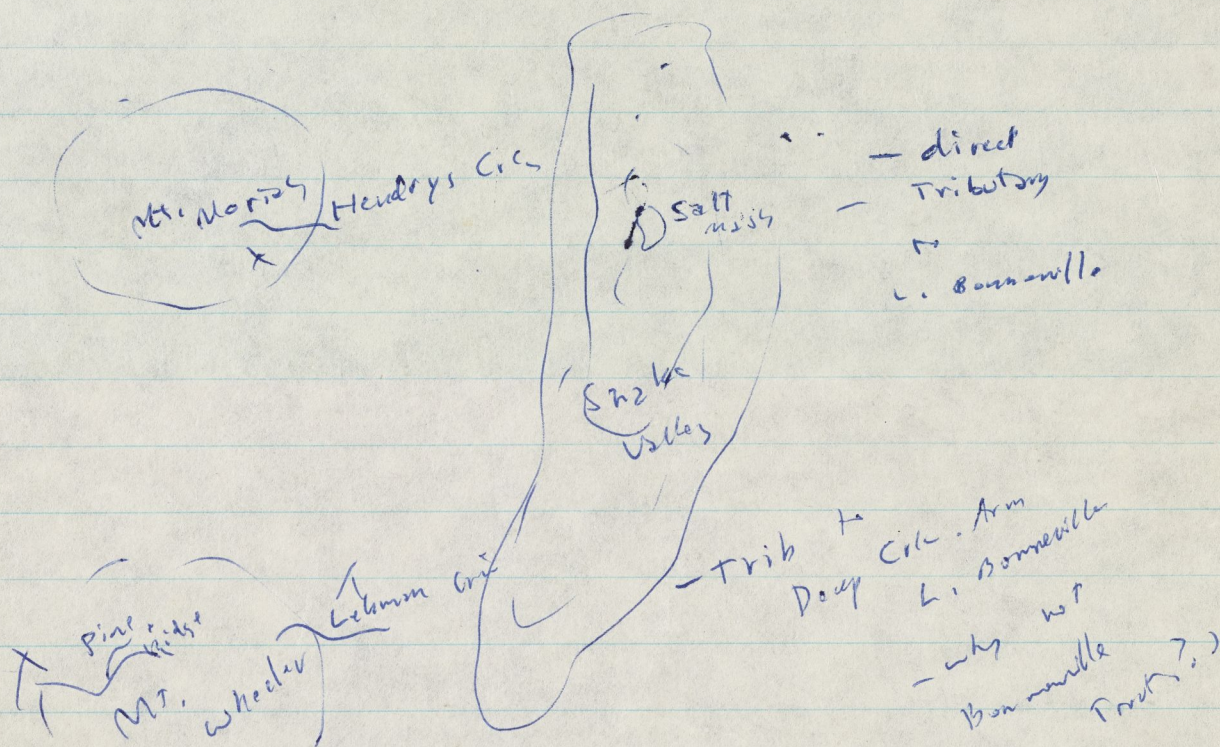 Mt. Moriah
Hendrys Crk
Salt
Marsh
— direct
Tributary
to
L. Bonneville
Snake
Valley
— Trib to
Deep Crk. Arm
L. Bonneville
— why not
Bonneville
Trout??
Lehman Crk
Pine +
Ridge
Mt.
Wheeler